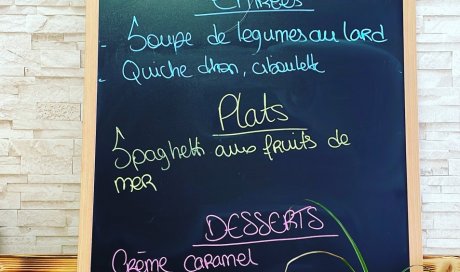 Entrées
- Soupe de legumes au lard
- Quiche thon, ciboulette
Plats
Spaghetti aux fruits de
mer
DESSERTS
Crème caramel